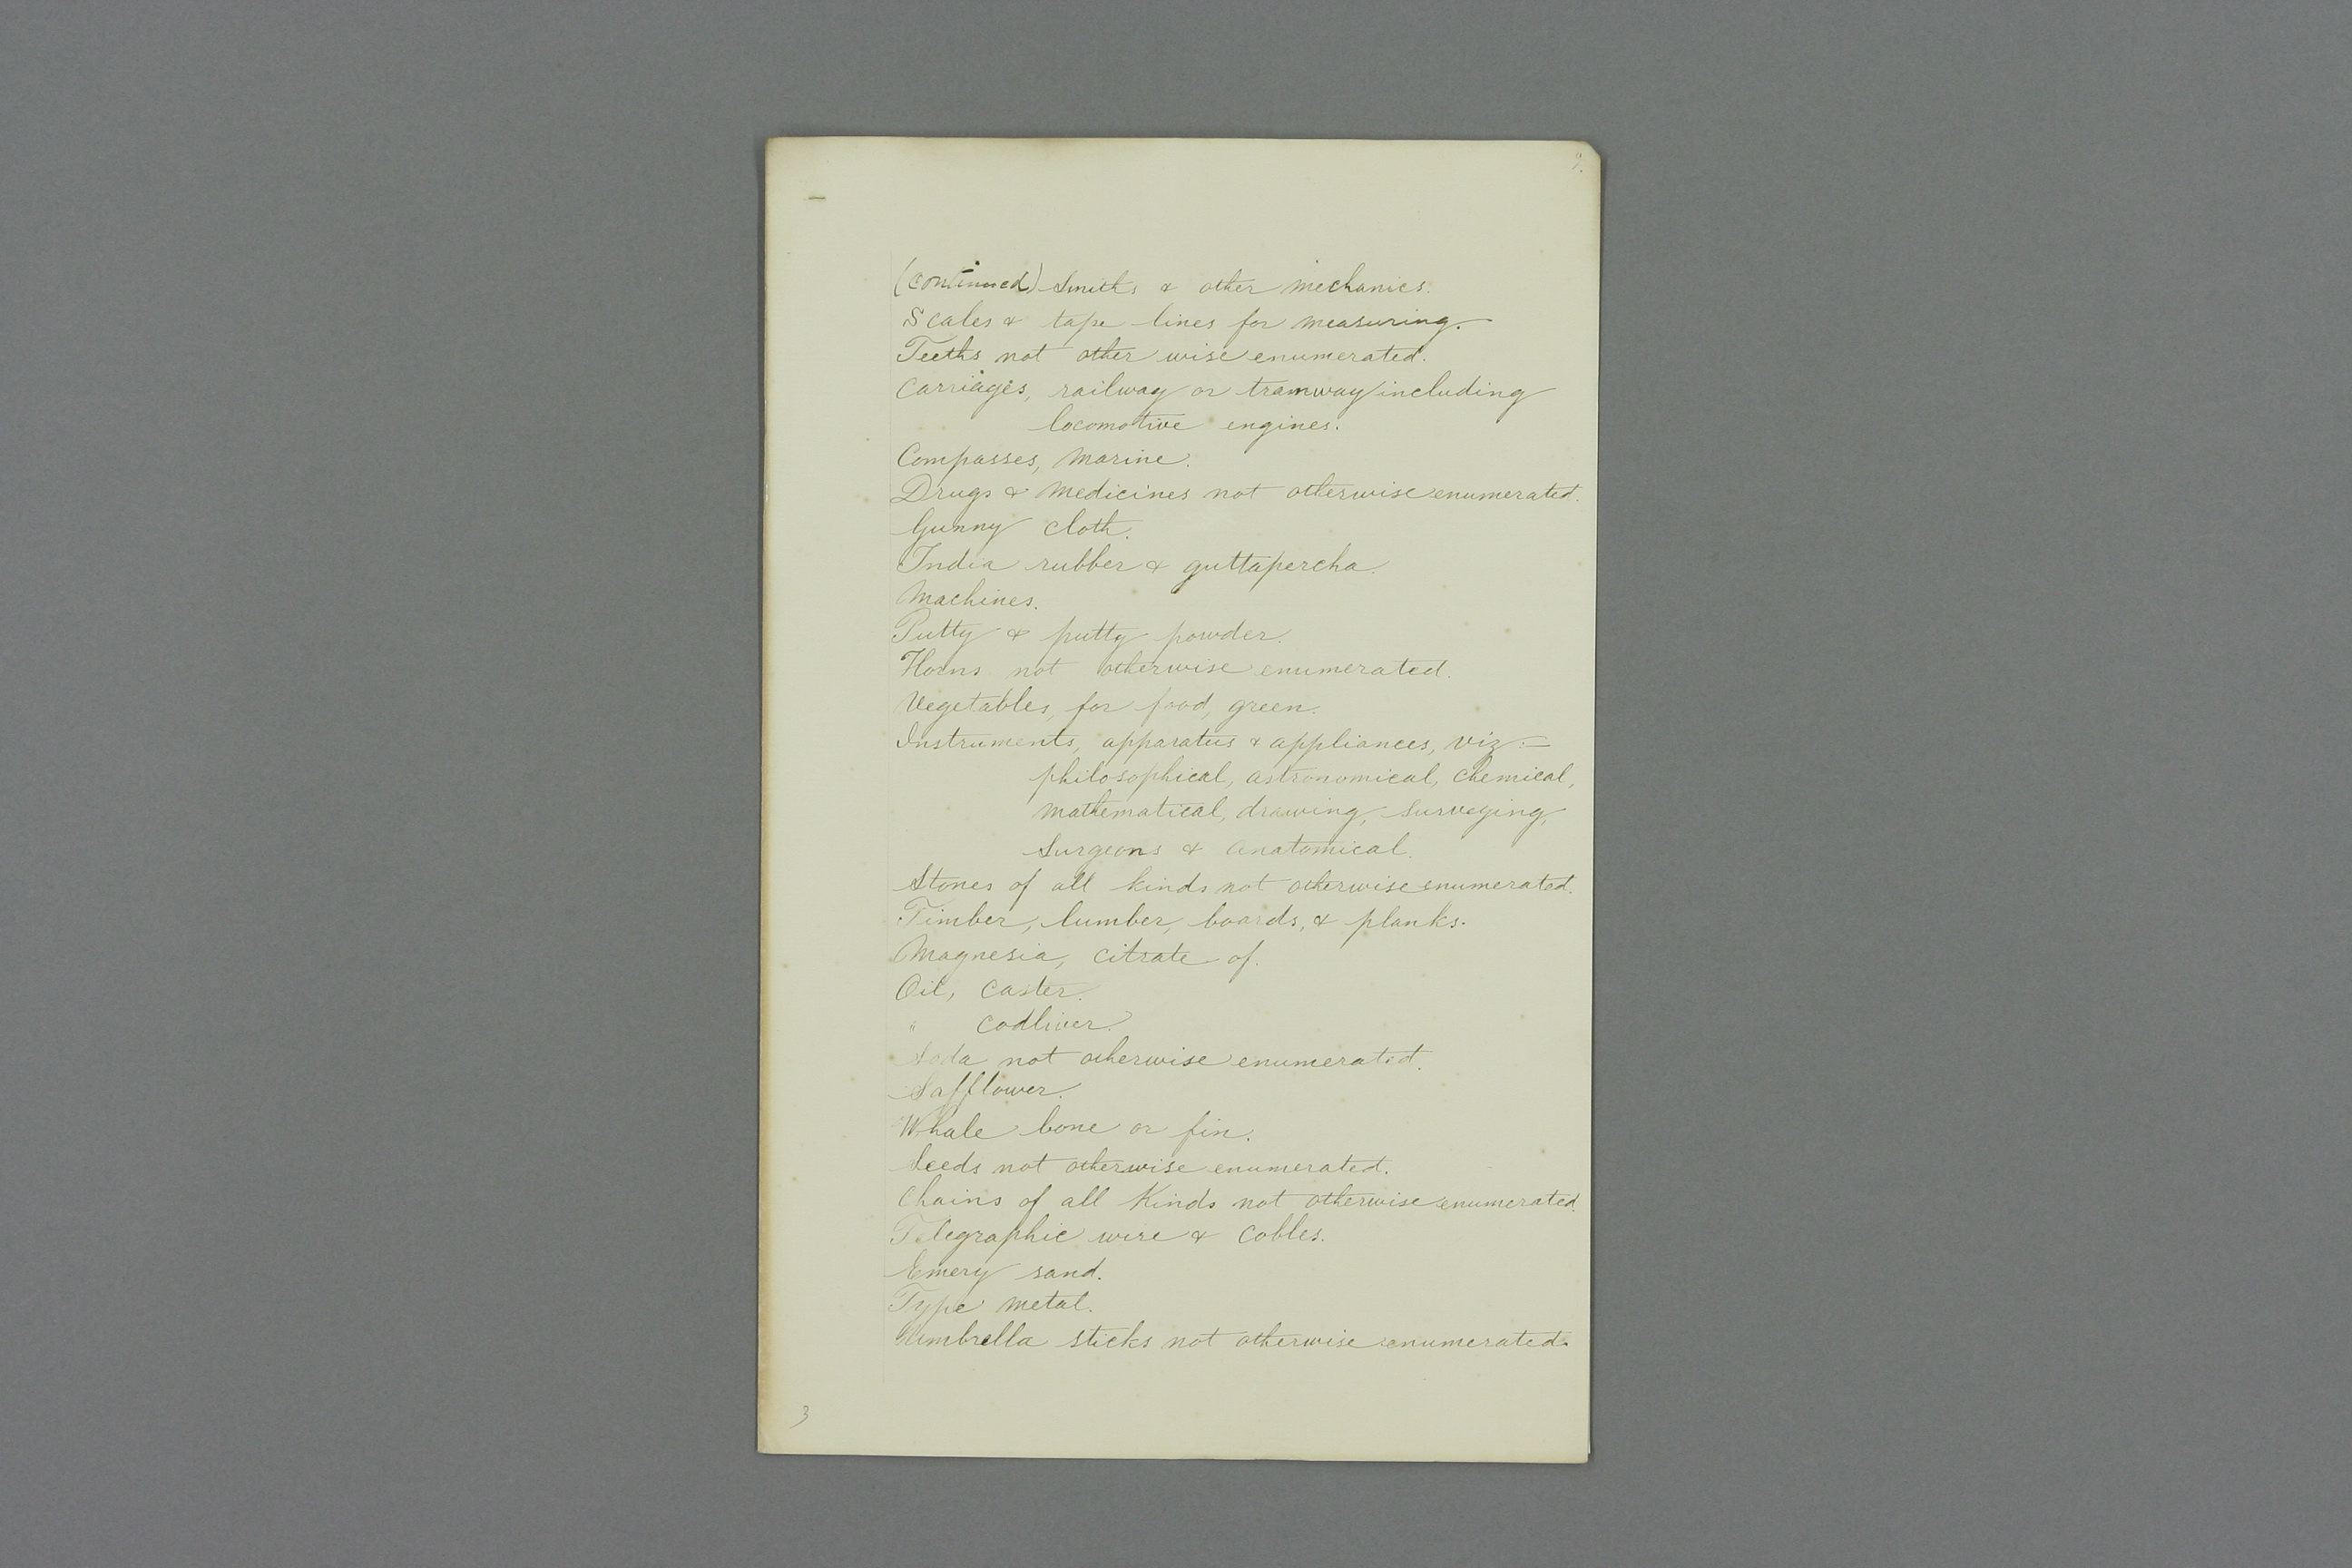 9.
(continued) Smiths & other mechanics.
Scales & tape lines for measuring.
Teeths not other wise enumerated.
Carriages, railway or tramway including
locomotive engines.
Compasses, marine.
Drugs & medicines not otherwise enumerated.
Gunny cloth.
India rubber & guttapercha.
Machines.
Putty & putty powder.
Horns not otherwise enumerated.
Vegetables, for food, green.
Instruments, apparatus & appliances, viz:—
philosophical, astronomical, chemical,
mathematical, drawing, surveying,
Surgeons & anatomical.
Stones of all kinds not otherwise enumerated.
Timber, lumber, boards, & planks.
Magnesia, citrate of.
Oil, caster.
" codliver.
Soda not otherwise enumerated.
Safflower.
Whale bone or fin.
Seeds not otherwise enumerated.
Chains of all Kinds not otherwise enumerated.
Telegraphic wire & cobles.
Emery sand.
Type metal.
Umbrella sticks not otherwise enumerated.
3